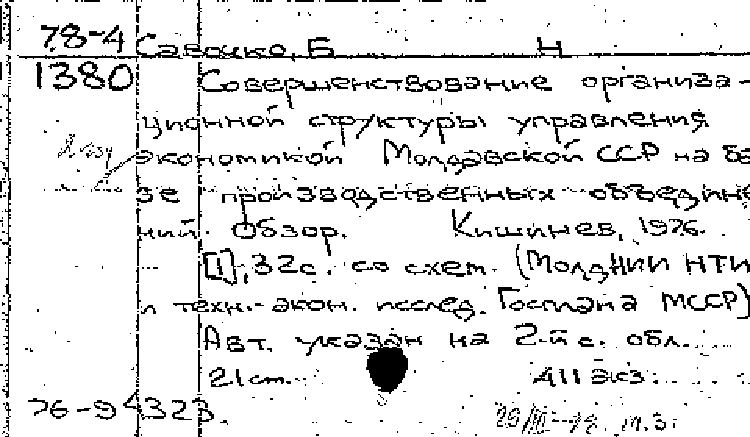 78-4 Савочко, Б Н
1380 Совершенствование организа-
ционной структуры управления
экономикой Молдавской ССР на ба
зе производственных объедине
ний. Обзор. Кишинев, 1976.
[1], 32с. со схем. (МолдНИИ НТИ
и техн.-экон. исслед. Госплана МССР)
Авт. указан на 2-й с. обл.
21см. 411 экз.
76-94323.